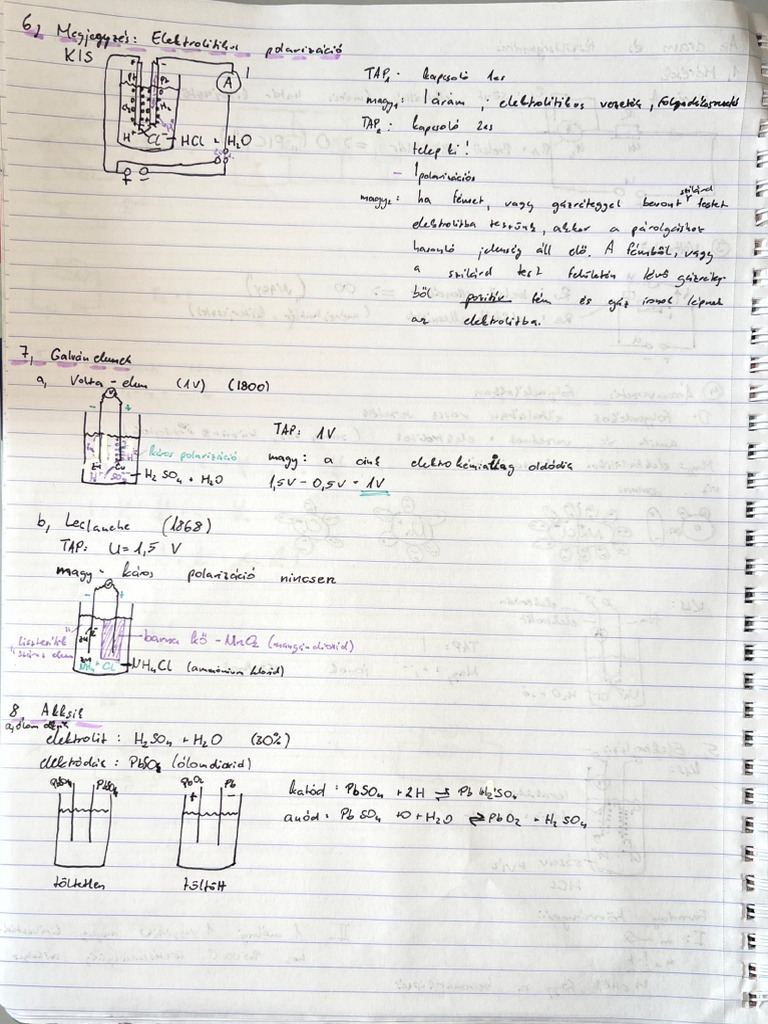 6, Megjegyzés: Elektrolitikus polarizáció
KIS
A
I
Pt
Pt
H+ Cl- HCl + H2O
+ -
TAP1: kapcsoló 1es
magy1: I áram, elektrolitikos vezetés,
TAP2: kapcsoló 2es
telep ki!
- I polarizációs
magy2: ha fémet, vagy gázréteggel bevont szilárd testet
elektrolitba teszünk, akkor a párolgáshoz
hasonló jelenség áll elő. A fémből, vagy
a szilárd test felületén lévő gázréteg-
ből pozitív fém és gáz ionok lépnek
az elektrolitba.
7, Galván elemek
a, Volta-elem (1V) (1800)
- +
káros polarizáció
Zn Cu
H+ SO4 H2SO4 + H2O
TAP: 1V
magy: a cink elektrokémiailag oldódik
1,5V - 0,5V = 1V
b, Leclanche (1868)
TAP: U = 1,5 V
magy - káros polarizáció nincsen
- +
"száraz elem"
Zn
barna kő - MnO2 (mangándioxid)
NH4+ Cl- NH4Cl (ammónium klorid)
8 Akksik
a, ólom akksi
elektrolit: H2SO4 + H2O (30%)
elektródás: PbSO4 (ólondioxid)
PbSO4 PbSO4
PbO2 Pb
+ -
katód: PbSO4 + 2H ⇌ Pb H2SO4
anód: PbSO4 + O + H2O ⇌ PbO2 + H2SO4
töltetlen töltött